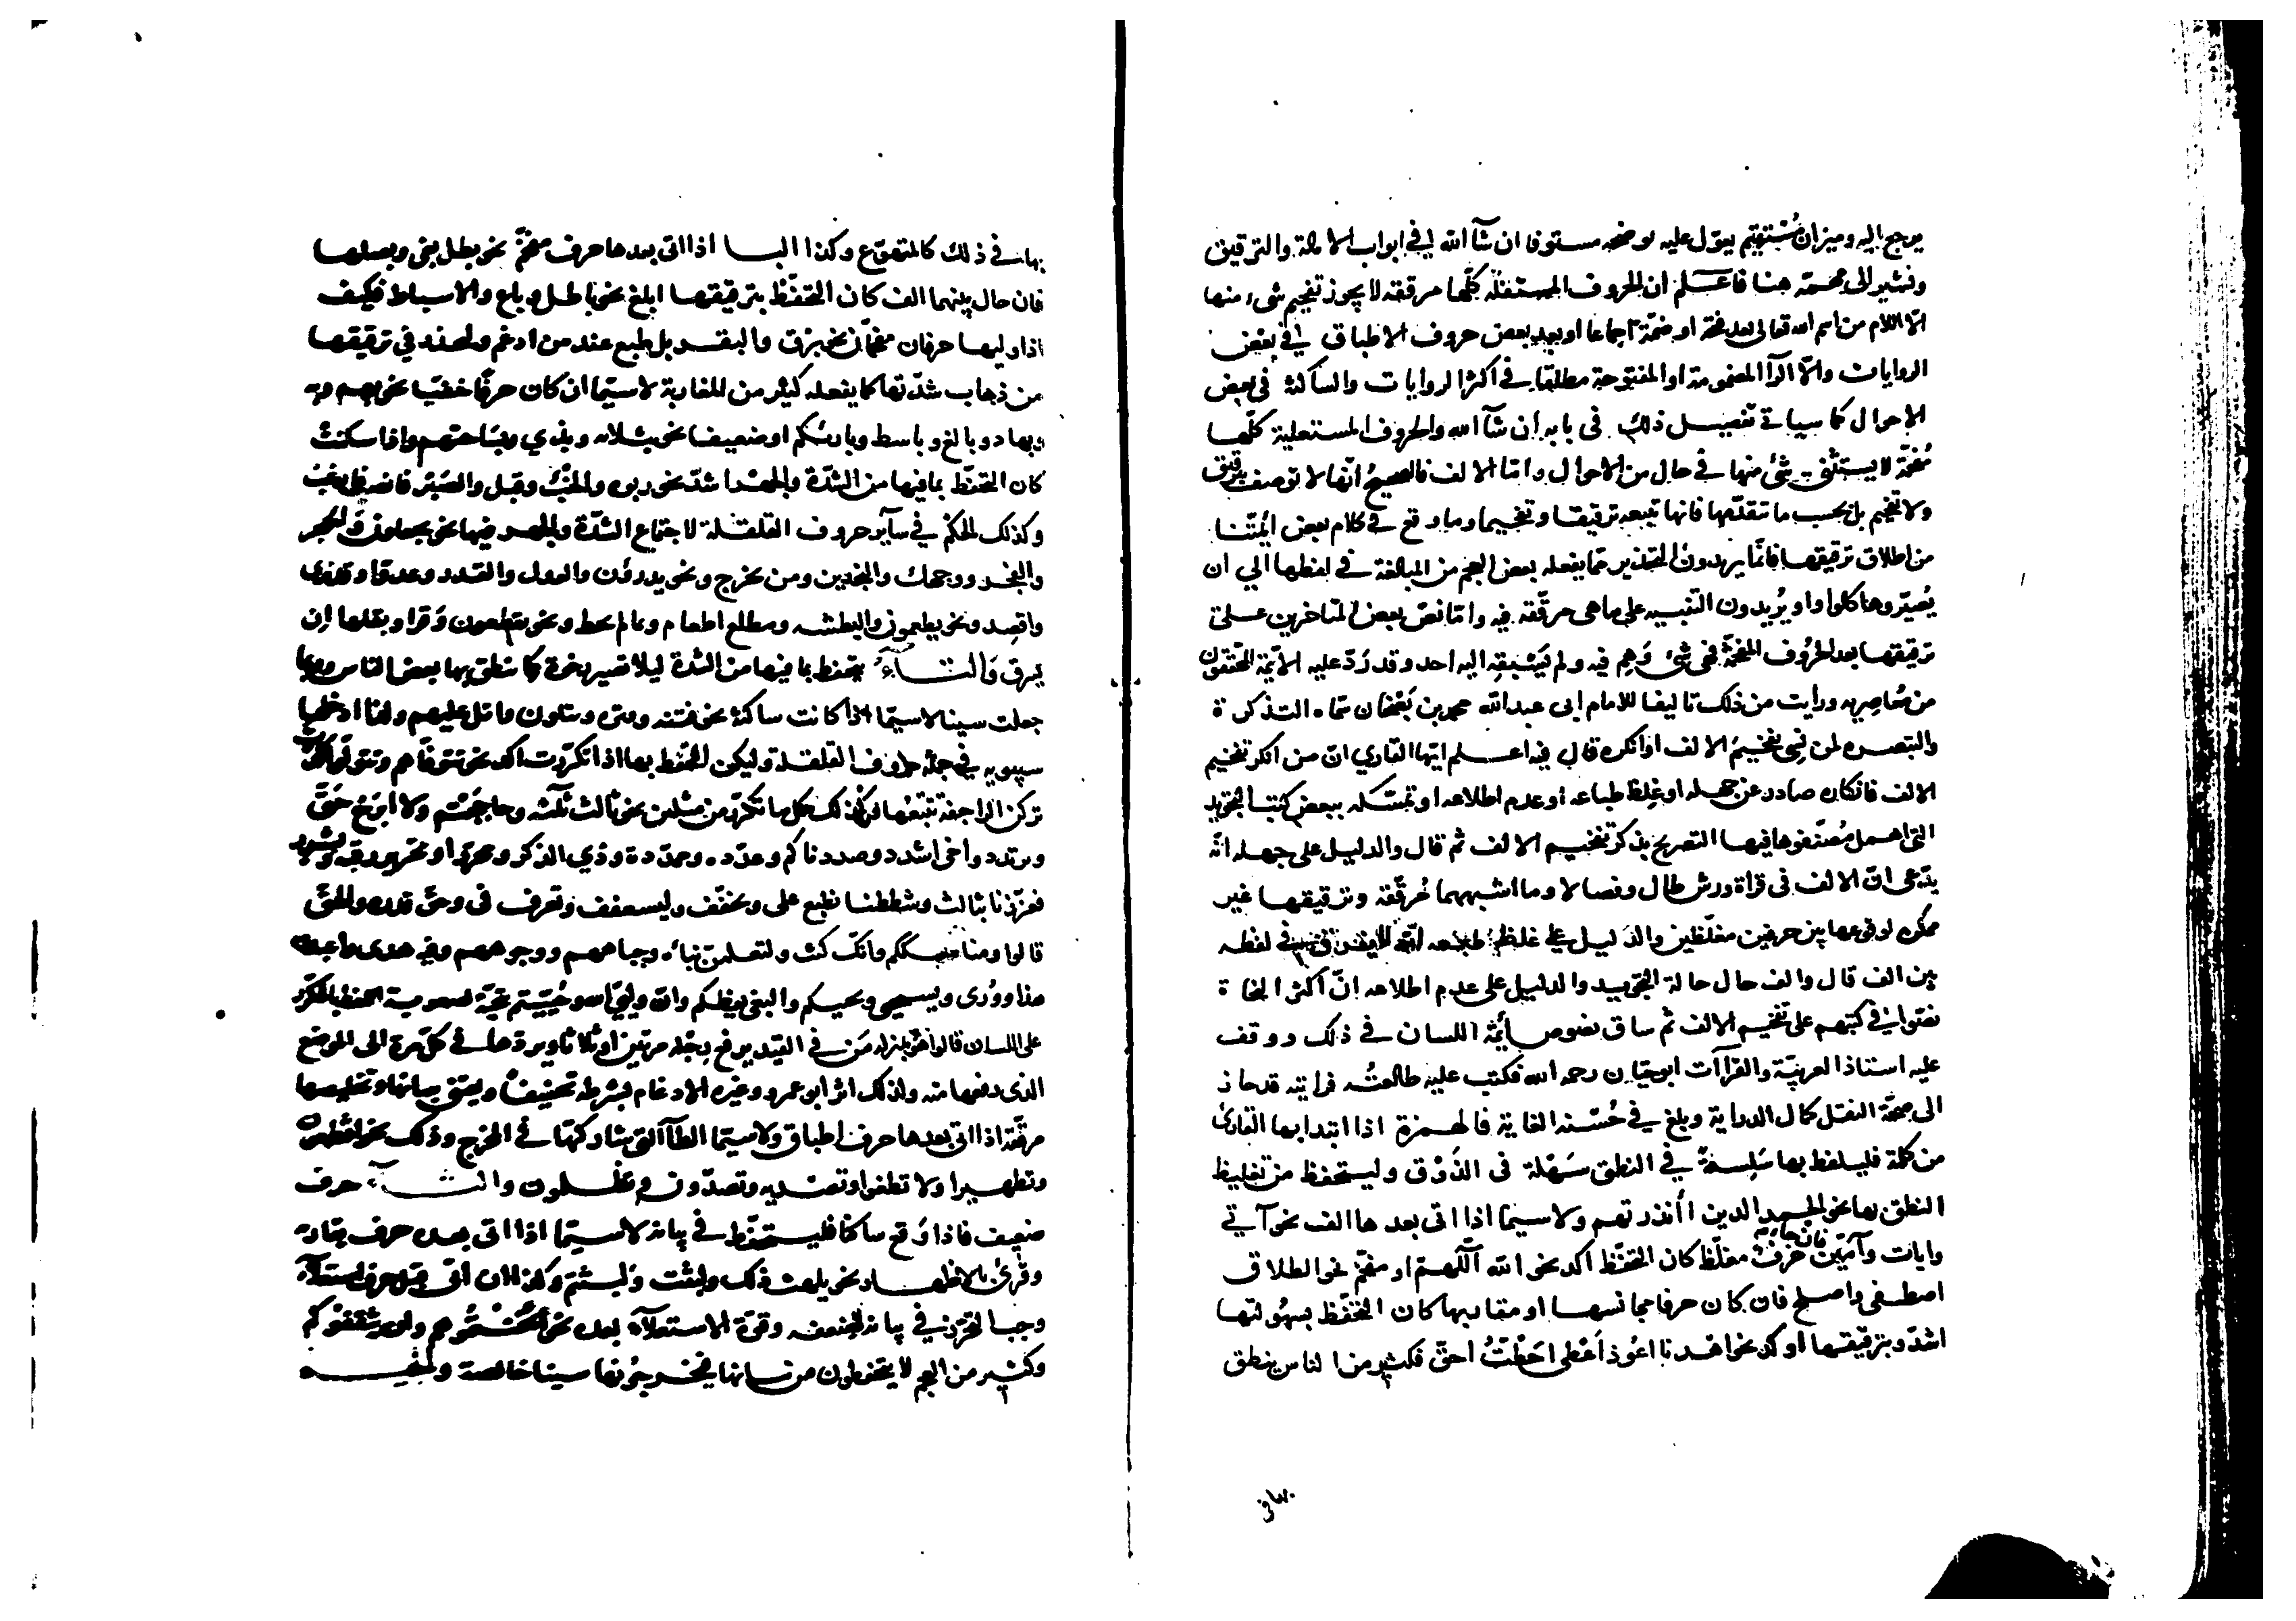 يرجع اليه وميزان مُسْتقيم يعوّل عليه نوضحه مستوفا ان شآ الله في ابواب الامالة والترقيق
ونشير الى مهمّة هنا فاعلم ان الحروف المستفلة كلّها مرققة لا يجوز تفخيم شىء منها
الا اللام من اسم الله تعالى بعد فتحة او ضمّة اجماعا او بعد بعض حروف الاطباق في بعض
الروايات والّا الرآ المضمومة او المفتوحة مطلقا في اكثر الروايات والساكنة في بعض
الاحوال كما سياتي تفصيل ذلك في بابه ان شآ الله والحروف المستعلية كلّها
مُفخمّة لا يستثنى شئ منها في حال من الاحوال وامّا الالف فالصحيحُ انّها لا توصف بترقيق
ولا تفخيم بل بحسب ما تقدّمها فانها تتبعه ترقيقا وتفخيما وما وقع في كلام بعض ائمّتنا
من اطلاق ترقيقها فانّما يريدون التحذير ممّا يفعله بعض العجم من المبالغة في لفظها الي ان
يُصيّروها كالواو او يُريدون التنبيه على ما هى مرقّقة فيه وامّا نصّ بعض المتاخرين على
ترقيقها بعد الحروف المفخّمة فهى شئ وَهِم فيه ولم يَسْبِقه اليه احد وقد رَدّ عليه الائمّة المحققون
من مُعاصريه ورايت من ذلك تاليفا للامام ابى عبد الله محمد بن بَصْخان سمّاه التذكرة
والتبصره لمن نسِى تفخيم الالف او انكره قال فيه اعلم ايّها القاري انّ من انكر تفخيم
الالف فانكاره صادر عن جهله او غِلظ طباعه او عدم اطلاعه او تمسّكه ببعض كتب التجويد
التى اهمل مُصنّفوها فيها التصريح بذكر تفخيم الالف ثم قال والدليل على جهله انّه
يدّعى انّ الالف فى قراة ورش طال وفصالا وما اشبههما مُرقّقة وترقيقها غير
ممكن لوقوعها بين حرفين مغلّظين والدليل على غلظ طبعه انّه لا يفرق في لفظه
بين الف قال والف حال حالة التجويد والدليل على عدم اطلاعه انّ اكثر النحاة
نصّوا في كتبهم على تفخيم الالف ثم ساق نصوص ائمّة اللسان في ذلك ووقف
عليه استاذ العربيّة والقراآت ابو حيّان رحمه الله فكتب عليه طالعتُه فرايته قد حاز
الى صحّة النقل كمال الدراية وبلغ في حُسْنه الغاية فالهمزة اذا ابتدا بها القارئ
من كلمة فليلفظ بها سَلِسةً في النطق سَهْلة فى الذَوْق وليتحفظ من تغليظ
النطق بها نحو الحمد الذين أأنذرتهم ولا سيما اذا اتى بعدها الف نحو آتى
وايات وآمّين فان جاء حرف مغلّظ كان التحفّظ اكد نحو الله اللّهمّ او مفخّم نحو الطلاق
اصطفى واصلح فان كان حرفا مجانسها او مقاربها كان التحفّظ بسهُولتها
اشدّ وبترقيقها اوكد نحو اهدنا اعُوذ أعْطى احَطْتُ احقّ فكثير من الناس ينطق
بها في
بها في ذلك كالمتهوّع وكذا البا اذا اتى بعدها حرف مفخّم نحو بطل بغى وبصلها
فان حال بينهما الف كان التحفّظ بترقيقها ابلغ نحو باطل وباغ والاسباط فكيف
اذا وليها حرفان مفخّمان نحو برق والبقر بل طبع عند من ادغم وليحذر في ترقيقها
من ذهاب شدّتها كما يفعله كثير من المغاربة لا سيّما ان كان حرفًا خفيّا نحو بهم وبه
وبهاد وبالغ وباسط وبارئكم او ضعيفا نحو بثلاثه وبذي وبساحتهم واذا سكنت
كان التحفّظ بما فيها من الشدّة والجهر اشدّ نحو ربوه والخَبْ وقبل والصَبْر فانصب فارغب
وكذلك الحكم في سآئر حروف القلقلة لاجتماع الشدّة والجهر فيها نحو يجعلون والحجر
والفجر ووجهك والنجدين ومن يخرج ونحو يدرؤن والعدل والقدر وعدوا وقد نرى
واقصِد ونحو يطعمون والبطشه ومطلع اطعام وبمالم يحط ونحو يقطعون وَقرا وبقلها اِن
يسرق وَالتآء يتحفظ بما فيها من الشدة ليلا تصير رخوة كما ينطق بها بعض الناس وربما
جعلت سينا لا سيّما اذا كانت ساكنة نحو فتنه وفترة ويتلون واتل عليهم ولهذا ادخلها
سيبويه في جملة حروف القلقلة وليكن التحفّظ بها اذا تكرّرت اكد نحو تتوفّاهم وتتولّوا كدت
تركن الراجفة تتبعُها وكذلك كل ما تكرّر من مثلين نحو ثالث ثلثه وحاججتم ولا ابرَح حتَّى
ويرتدد واخى اشدد وصددناكم وعدّده وممدّدة وذي الذكر ومحرّرا وتحرير رقبه وبشرر
فعزّزنا بثالث وشططنا نطبع على ويخفّف وليستعفف وتعرف فى وحقّ قدره والحقّ
قالوا ومناسككم وانّك كنت ولتعلمنّ نباه وجباههم ووجوههم وفيه هدى واعبدوه
هذا ووُرى ويستحيى ويحييكم والبغى يعظكم وانّ وليّي الله وحُيّيتم بتحيّة لصعوبة اللفظ بالمكرّر
على اللسان قالوا هو بمنزلة مَن في القيد يرفع رجله مرتين او ثلاثا ويردها في كلّ مرة الى الموضع
الذى رفعها منه ولذلك اثر ابو عمرو وغيره الادغام بشرطه تخفيفًا ويعتنى ببيانها وتخليصها
مرققة اذا اتى بعدها حرف اطباق ولا سيما الطآ التى شاركتها في المخرج وذلك نحو افتطمعون
وتطهيرا ولا تطغوا وتصديه وتصدّون وتظلمون والثآء حرف
ضعيف فاذا وَقع ساكنا فليتحفّظ في بيانه لا سيّما اذا اتى بعده حرف يقاربه
وقرئ بالاظهار نحو يلهث ذلك ولبثت ولبثتم وكذا ان اتى قبل حرف استعلآء
وجب التحرّز في بيانه لضعفه وقوّة الاستعلآء بعده نحو اثخنتموهم وان يثقفوكم
وكثير من العجم لا يتحفظون من بيانها فيخرجونها سينا خالصة والجيم